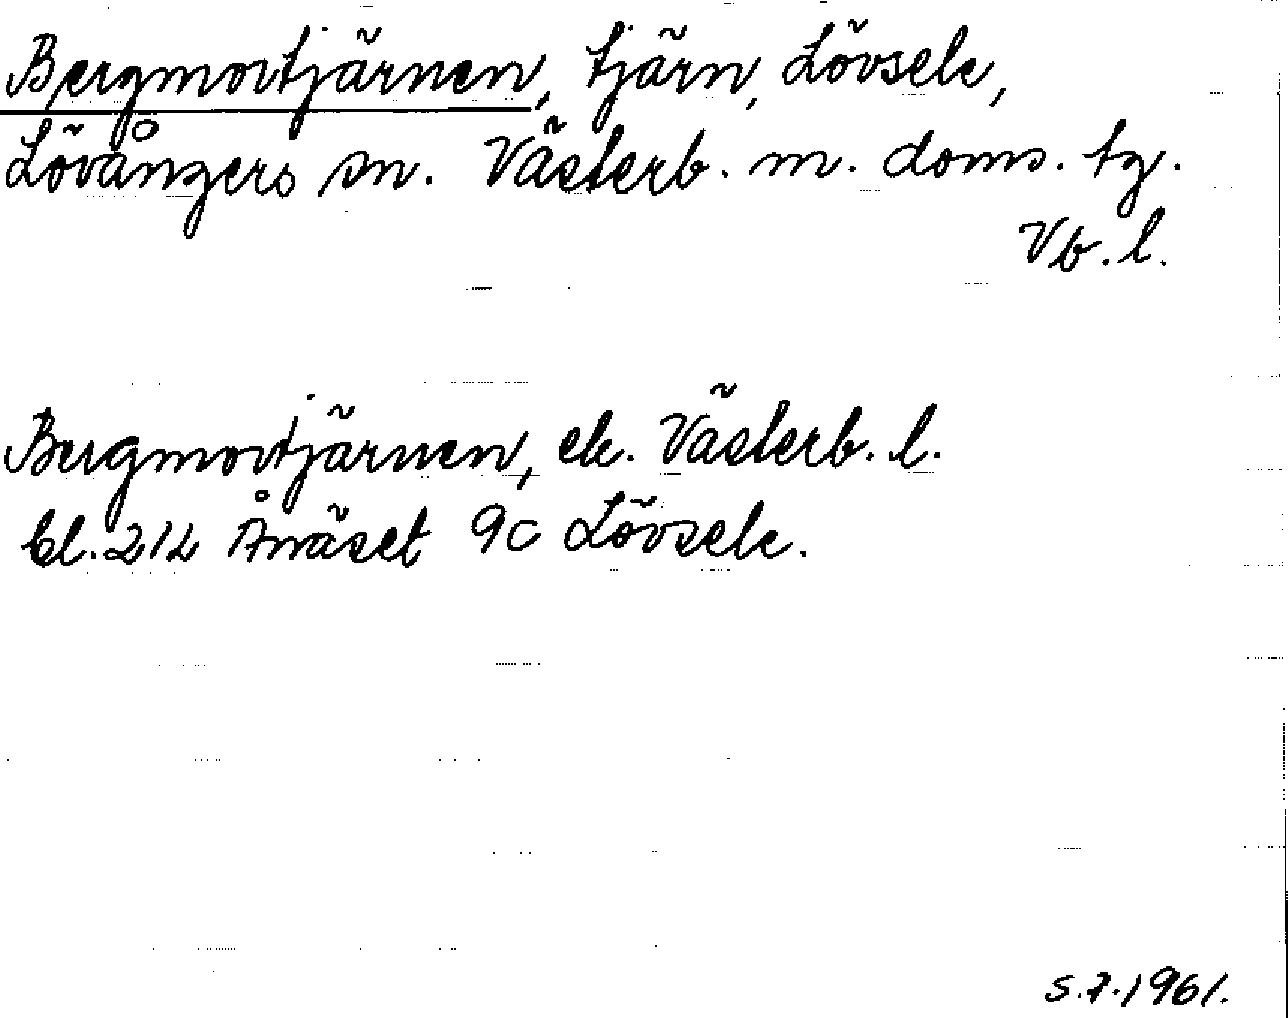 Bergmortjärnen, tjärn, Lövsele,
Lövångers sn. Västerb. m. doms. tg.
Vb. l.
Bergmortjärnen, ek. Västerb. l.
bl. 212 Ånäset 9c Lövsele.
5.7.1961.